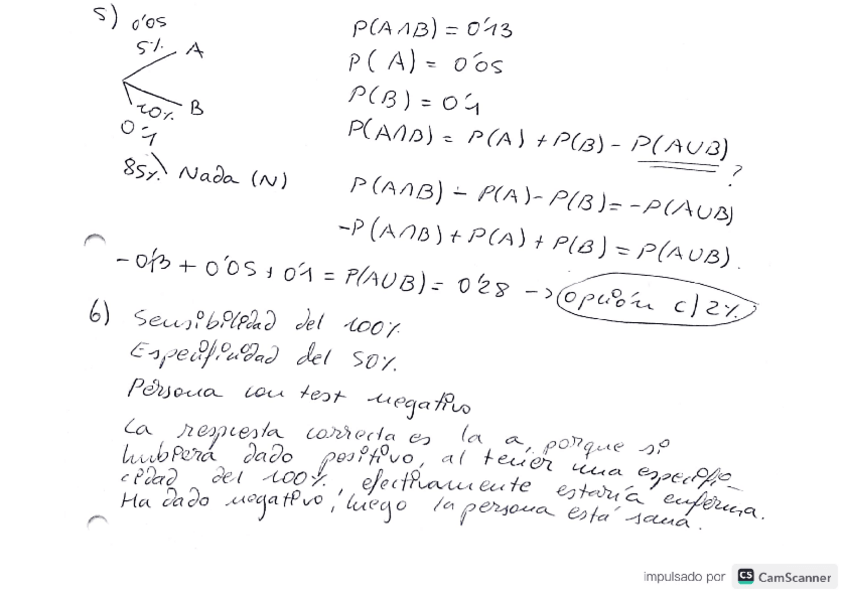 5) 0'05
5% A
10% B
0'1
85% Nada (N)
P(A∩B) = 0'13
P(A) = 0'05
P(B) = 0'1
P(A∩B) = P(A) + P(B) - P(A∪B)
?
P(A∩B) - P(A) - P(B) = -P(A∪B)
-P(A∩B) + P(A) + P(B) = P(A∪B).
-0'13 + 0'05 + 0'1 = P(A∪B) = 0'28 → opción c) 2%
6) Sensibilidad del 100%
Especificidad del 50%.
Persona con test negativo
La respuesta correcta es la a, porque si
hubiera dado positivo, al tener una especifi-
cidad del 100%, efectivamente estaría enferma.
Ha dado negativo, luego la persona está sana.
impulsado por CS CamScanner